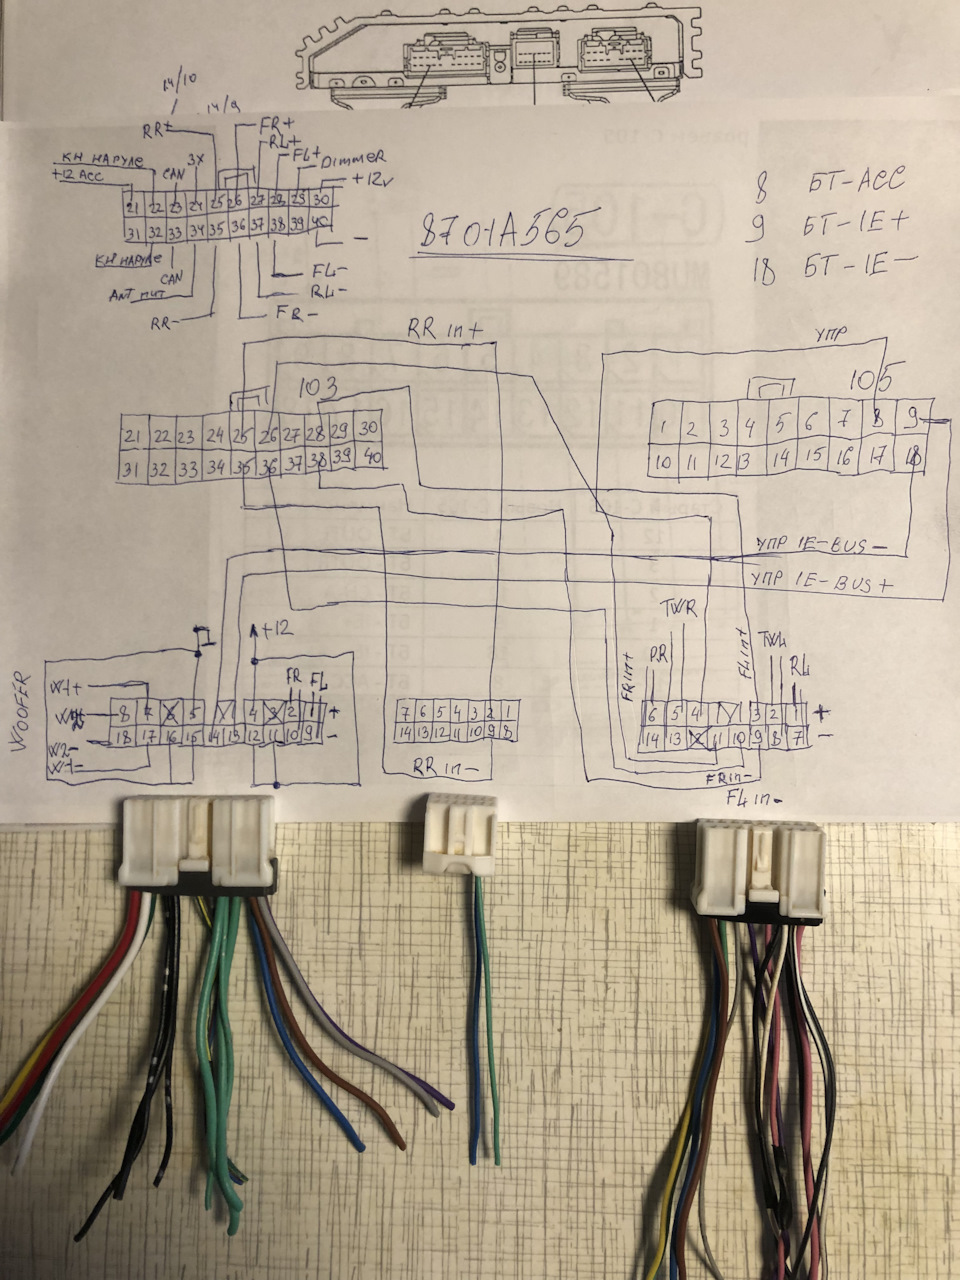 14/10
14/9
RR+
FR+
RL+
FL+
DIMMER
+12v
КН НА РУЛЕ
+12 ACC
CAN
3X
21 22 23 24 25 26 27 28 29 30
31 32 33 34 35 36 37 38 39 40
КН НА РУЛЕ
CAN
ANT ПИТ
RR-
-
FL-
RL-
FR-
8701A565
8 БТ-ACC
9 БТ-IE+
18 БТ-IE-
MU801589
RR in+
УПР
103
105
21 22 23 24 25 26 27 28 29 30
31 32 33 34 35 36 37 38 39 40
1 2 3 4 5 6 7 8 9
10 11 12 13 14 15 16 17 18
УПР IE-BUS-
УПР IE-BUS+
WOOFER
+12
FR
FL
W1+
W2-
W1-
8 7 6 5 4 3 2 1
+
18 17 16 15 14 13 12 11 10 9
-
7 6 5 4 3 2 1
14 13 12 11 10 9 8
RR in-
TWR
TWL
RR
RL
FR in+
FL in+
6 5 4 3 2 1
+
14 13 12 11 10 9 8 7
-
FR in-
FL in-